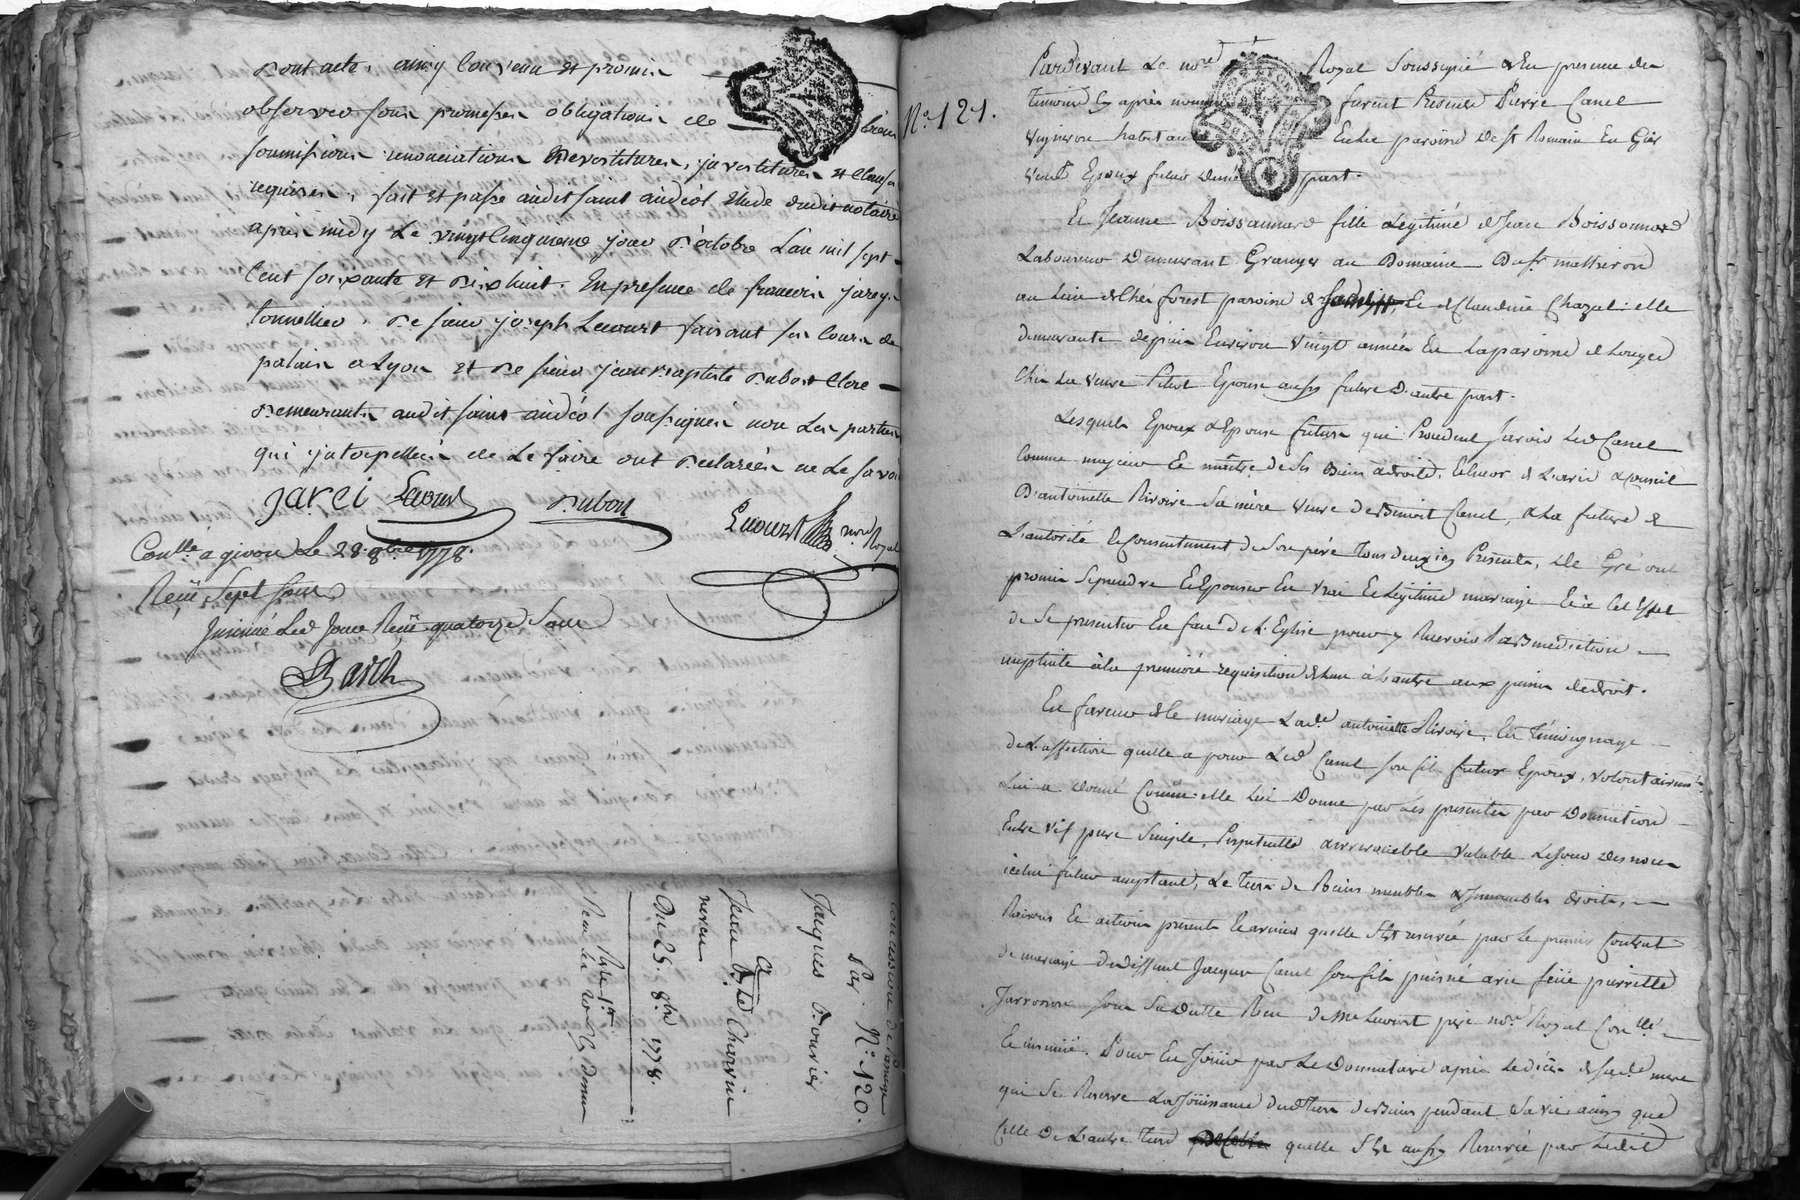 dont acte, ainsy convenu et promis
observer sous promesses obligations de biens
soumissions renonciations devestitures, investitures et clauses
requises, fait et passé audit saint andéol étude dudit notaire
après midy le vingtcinquieme jour d'octobre l'an mil sept
cent soixante et dixhuit. En présence de francois jarcy
tonnellier, de sieur joseph Lecourt faisant ses cours de
palais a Lyon et de sieur jean baptiste dubost clerc
demeurants audit saint andéol soussignés non les parties
qui interpellées de le faire ont declarées ne le savoir
jarci Lecourt dubost
Lecourt nore Royal
Conllé a givors Le 28 8bre 1778.
Reçu Sept sous
Insinué Led Jour Reçu quatorze Sous
Par
N° 120.
Jacques Bouvier
a
Jean Bte Charvin
neveu
Du 25. 8bre 1778.
N° 121.
Pardevant Le nore Royal Soussigné & En presence des
temoins cy après nommés furent Presents Pierre Canel
vigneron habitant paroisse de St Romain En Gier
Epoux futur d'une part.
Et Jeanne Boissonnard fille Legitime de Jean Boissonnard
Laboureur Demeurant Granger au Domaine Du sr
au Lieu de paroisse de & de Claudine Chazal elle
demeurante depuis Environ vingt années En La paroisse de
Chés La veuve Pitiot Epouse aussy future D'autre part.
Lesquels Epoux & Epouse futurs qui Procedent Savoir Led Canel
Comme majeur Et maitre de Ses Biens & droits, Et encor de L'avis & Conseil
D'antoinette Rivoire Sa mère veuve de Benoit Canel, & La future de
L'autorité & Consentement de Son père tous deux icy Presents, De Gré ont
promis Se prendre Et Epouser En vrai Et Legitime mariage Et à Cet Effet
de Se presenter En face de L'Eglise pour y Recevoir La Benediction
nuptiale à la première requisition de L'un à L'autre aux peines de droit.
En faveur de Ce mariage Lade antoinette Rivoire, En Témoignage
de L'affection qu'elle a pour Led Canel Son fils futur Epoux, volontairemt
Lui a Donné Comme elle Lui Donne par Les presentes par Donnation
Entre vifs pure Simple, Perpetuelle & irrevocable valable
icelui futur acceptant, Le tiers de Biens meubles & immeubles droits,
Raisons Et actions presents & avenir qu'elle S'est reservé par Le premier Contrat
de mariage du deffunt Jacques Canel Son fils puisné avec feüe pierrette
Jarrosson Sous Sa Datte Reçu de Me Lecourt père nore Royal Conllé
Et insinué. Pour En Joüir par Le Donnataire après Le décès de Sade mere
qui Se Reserve La Joüissance dud tiers de Biens pendant Sa vie ainsy que
Celle De L'autre tiers qu'elle S'est aussy Reservée par Ledit